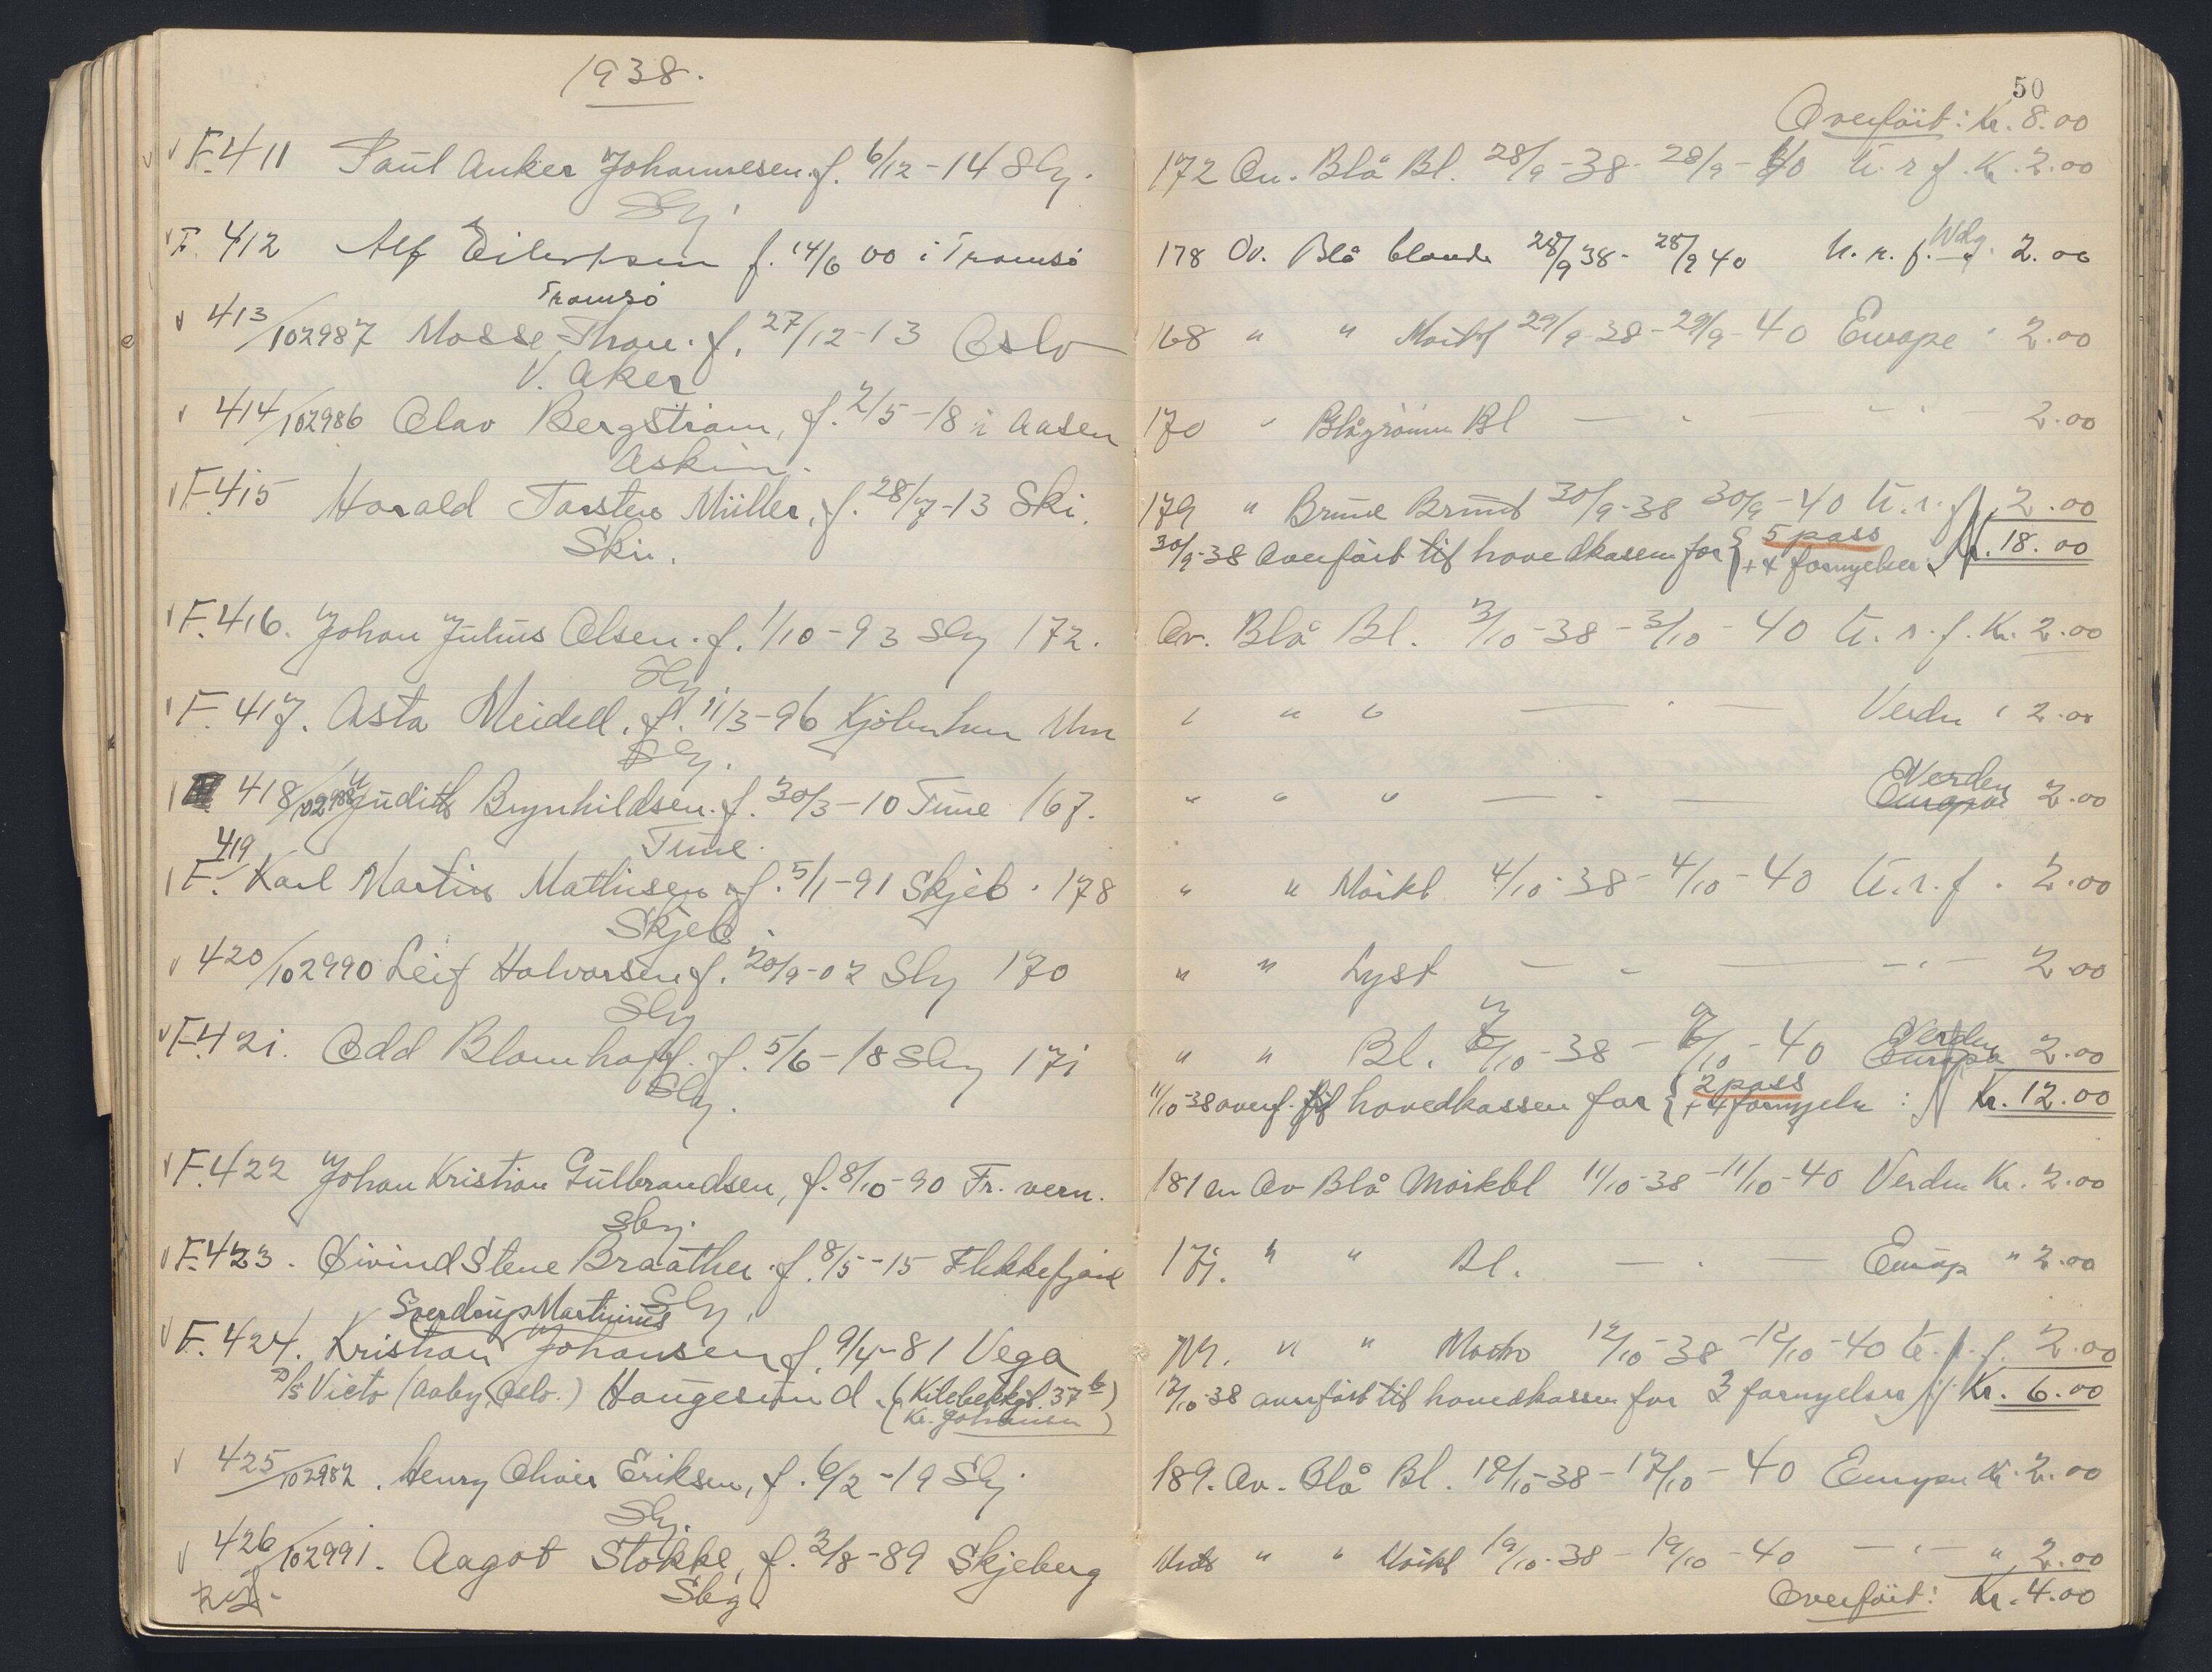 1938.
50
Overført: Kr. 8.00
F. 411 Paul Anker Johannesen. f. 6/12-14 Sbg. 172 Ov. Blå Bl. 28/9-38- 28/9-40 U. r. f. Kr. 2.00
Sbg.
F. 412 Alf Eilertsen f. 14/6 00 i Tromsö 178 Ov. Blå blonde 28/9 38- 28/9 40 U. r. f. 2.00
Tromsö
413/102987 Mosse Thon. f. 27/12-13 Oslo 168 " " Mörkbl 29/9-38-29/9-40 Europa " 2.00
V. Aker
414/102986 Olav Bergström, f. 2/5-18 i Aasen 170 " Blågrönn Bl — " — " — 2.00
Askim.
F. 415 Harald Torsten Müller, f. 28/7-13 Ski. 179 " Brune Brunt 30/9-38 30/9-40 U. r. f. 2.00
Ski. 30/9-38 Overfört til hovedkassen for { 5 pass + 4 fornyelser : Kr. 18.00
F. 416. Johan Julius Olsen. f. 1/10-93 Sbg 172. Ov. Blå Bl. 3/10-38-3/10-40 U. r. f. Kr. 2.00
Sbg
F. 417. Asta Meidell, f. 11/3-96 Kjöbenhvn " " " — " — Verden " 2.00
Sbg.
418/102988 Judith Brynhildsen. f. 30/3-10 Tune 167. " " " — " — Verden Europa 2.00
Tune.
419
F. Karl Martin Mathisen f. 5/1-91 Skjeb. 178 " " Mörkbl 4/10-38-4/10-40 U. r. f. 2.00
Skjeb.
420/102990 Leif Halvorsen f. 20/9-02 Sbg 170 " " Lyst — " — — " — 2.00
Sbg
F. 421. Odd Blomhoff. f. 5/6-18 Sbg 171 " " Bl. 7/10-38-7/10-40 Verden Europa 2.00
Sbg. 11/10-38 overf. til hovedkassen for { 2 pass + 4 fornyelse : Kr. 12.00
F. 422 Johan Kristian Gulbrandsen, f. 8/10-90 Fr. vern. 181 cm Ov Blå Mörkbl 11/10-38-11/10-40 Verden Kr. 2.00
Sbg.
F. 423. Øivind Stene Braather. f. 8/5-15 Flekkefjord 171. " " Bl. — " — Europ " 2.00
Sbg.
Sverdrup Martinius
F. 424. Kristian Johansen f. 9/4-81 Vega " " 12/10-38-12/10-40 U. r. f. 2.00
D/S Victo (Aaby, Oslo.) Haugesund. (Kilebekkgt. 37 b) 12/10-38 overfört til hovedkassen for 3 fornyelser Kr. 6.00
(Kr. Johansen)
425/102982. Henry Oliver Eriksen, f. 6/2-19 Sbg. 189. Ov. Blå Bl. 18/10-38-17/10-40 Europa Kr. 2.00
Sbg.
426/102991. Aagot Stokke, f. 2/8-89 Skjeberg " " Mörkbl 19/10-38-19/10-40 — " — " 2.00
Sbg. Overfört: Kr. 4.00